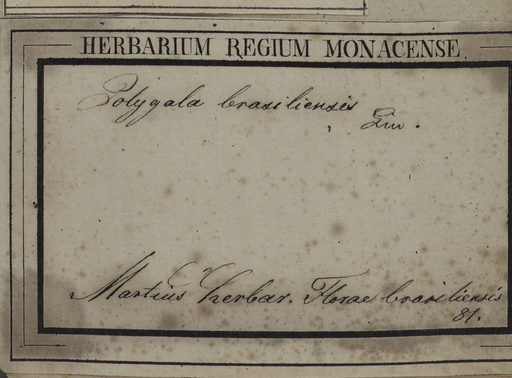 HERBARIUM REGIUM MONACENSE.
Polygala brasiliensis
Lin.
Martius herbar. Florae brasiliensis
81.